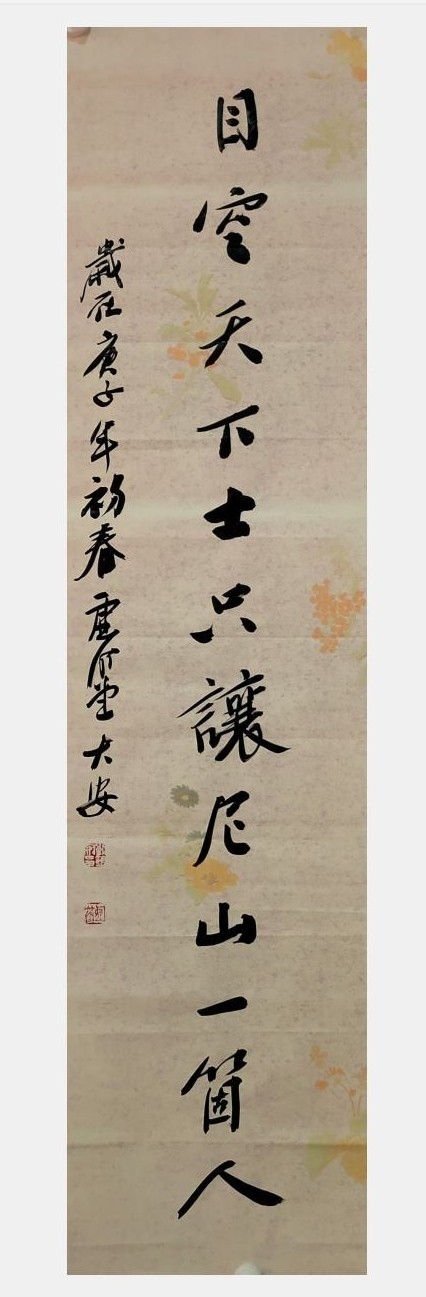 目空天下士只讓尼山一箇人
歲在庚子年初春 大安